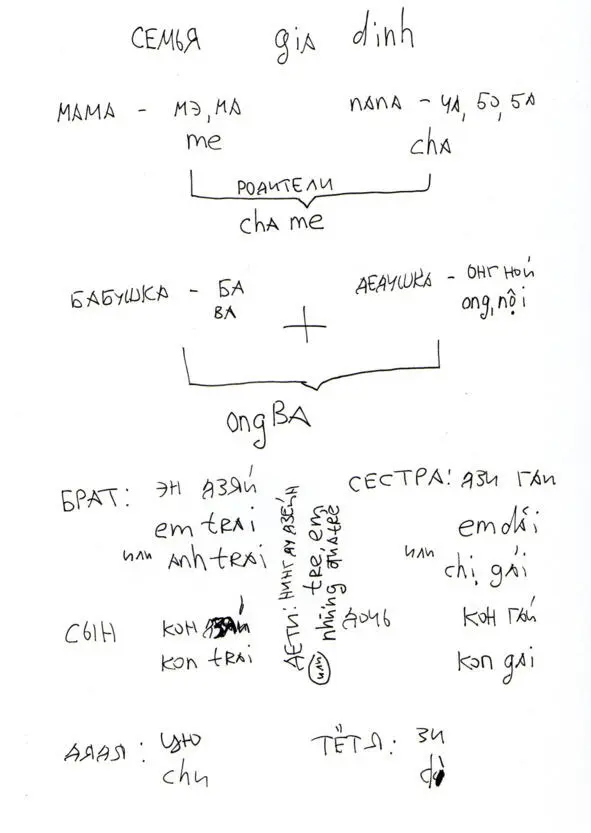 СЕМЬЯ gia dinh
МАМА - МЭ, МА ПАПА - ЧА, БО, БА
me cha
РОДИТЕЛИ
cha me
БАБУШКА - БА ДЕДУШКА - ОНГ НОЙ
BA ong, nội
+
ong BA
БРАТ: ЭН ДЗЯЙ СЕСТРА: ДЗИ ГАЙ
em trai em
или anh trai или chị, gái
ДЕТИ: НИНГ ДУ ДЗЕЙН
tre, em
или những đứa trẻ
СЫН КОН ДОЧЬ КОН ГАЙ
kon trai kon gai
ДЯДЯ: ЦЮ ТЁТЯ: ЗИ
chu dì